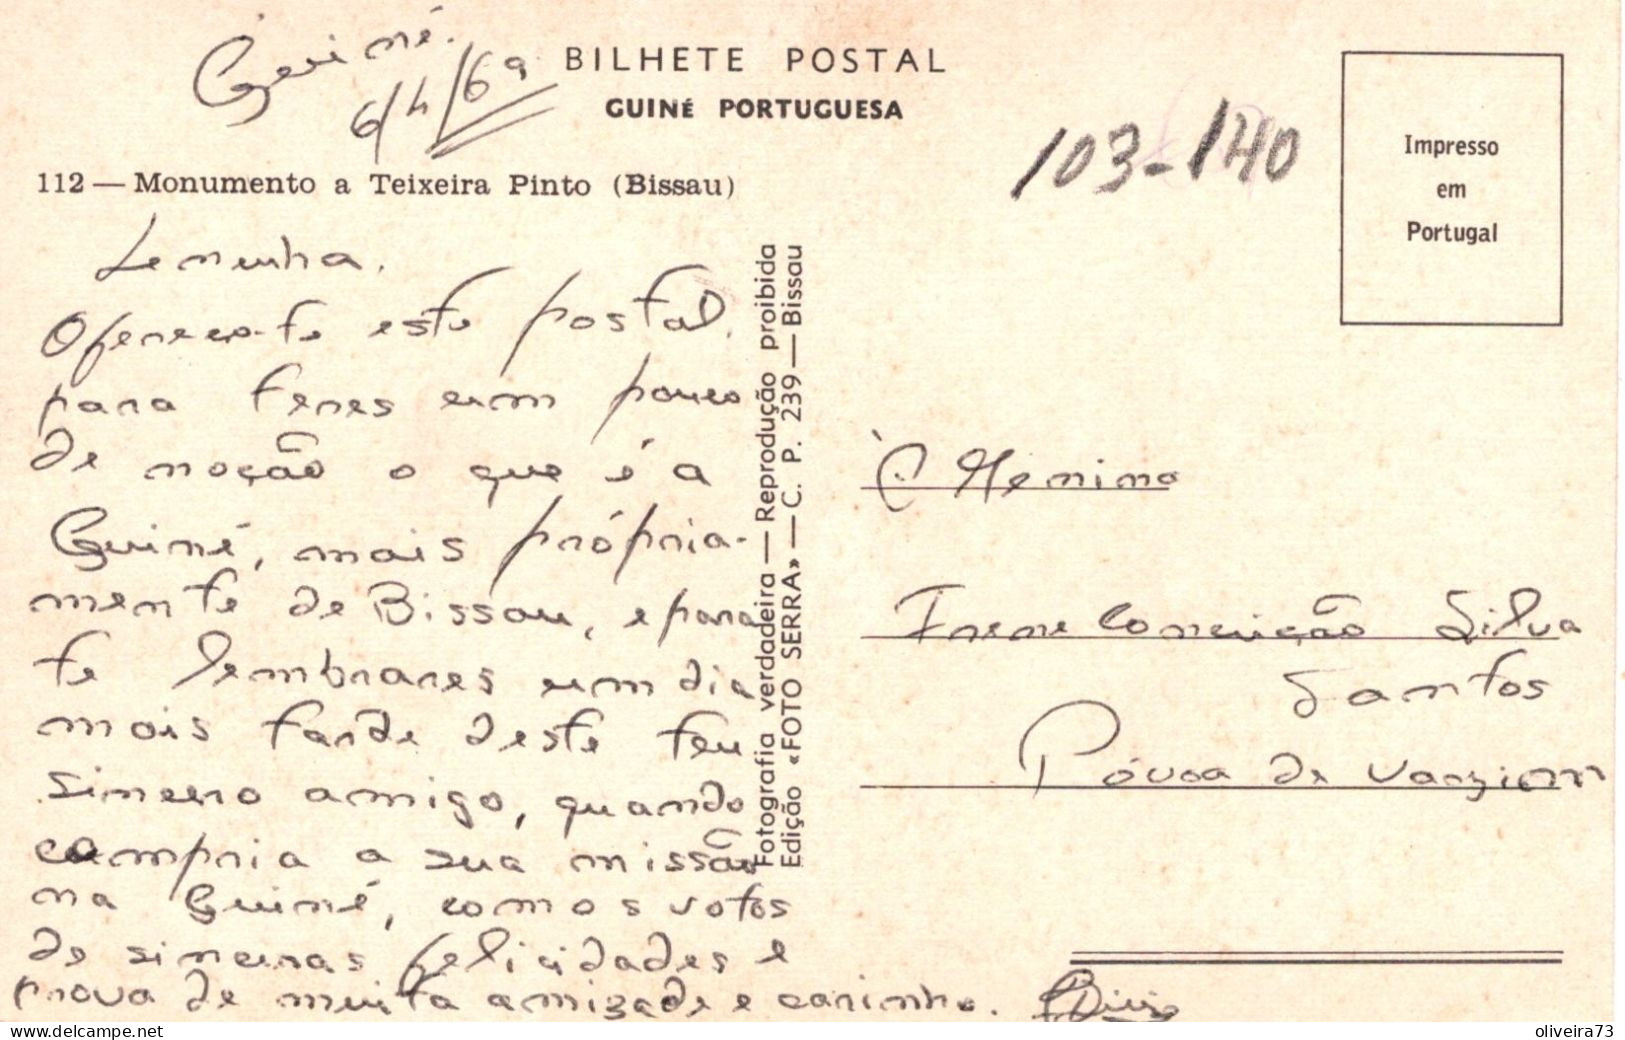 Guiné.
6/4/69
BILHETE POSTAL
GUINÉ PORTUGUESA
112 — Monumento a Teixeira Pinto (Bissau)
103-140
Impresso
em
Portugal
Lenunha.
Ofereço-te este postal,
para teres um pouco
de noção o que é a
Guiné, mais própria-
mente de Bissau, e para
te lembrares um dia
mais tarde deste teu
sincero amigo, quando
cumpria a sua missão
na Guiné, com os votos
de sinceras felicidades e
prova de muita amizade e carinho.
Fotografia verdadeira — Reprodução proibida
Edição «FOTO SERRA» — C. P. 239 — Bissau
À Menina
Irene Conceição Silva
Santos
Póvoa de Varzim
oliveira73